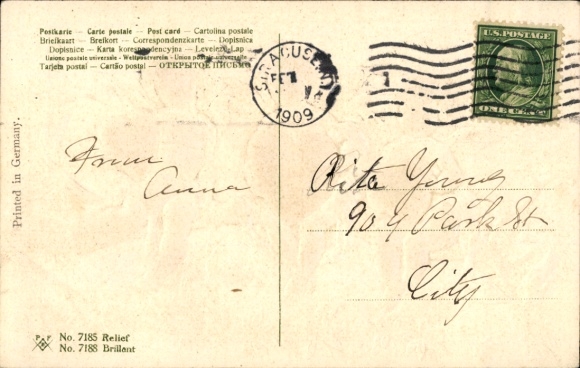 Postkarte — Carte postale — Post card — Cartolina postale
Briefkaart — Brefkort — Correspondenzkarte — Dopisnica
Dopisnice — Karta korespondencyjna — Levelező-Lap
Unione postale universale - Weltpostverein - Union postale universelle
Tarjeta postal — Cartão postal — ОТКРЫТОЕ ПИСЬМО
SYRACUSE, N.Y.
FEB
1909
U.S. POSTAGE
Printed in Germany.
From
Anna
Rita Young
904 Park St
City
P F B
No. 7185 Relief
No. 7188 Brillant